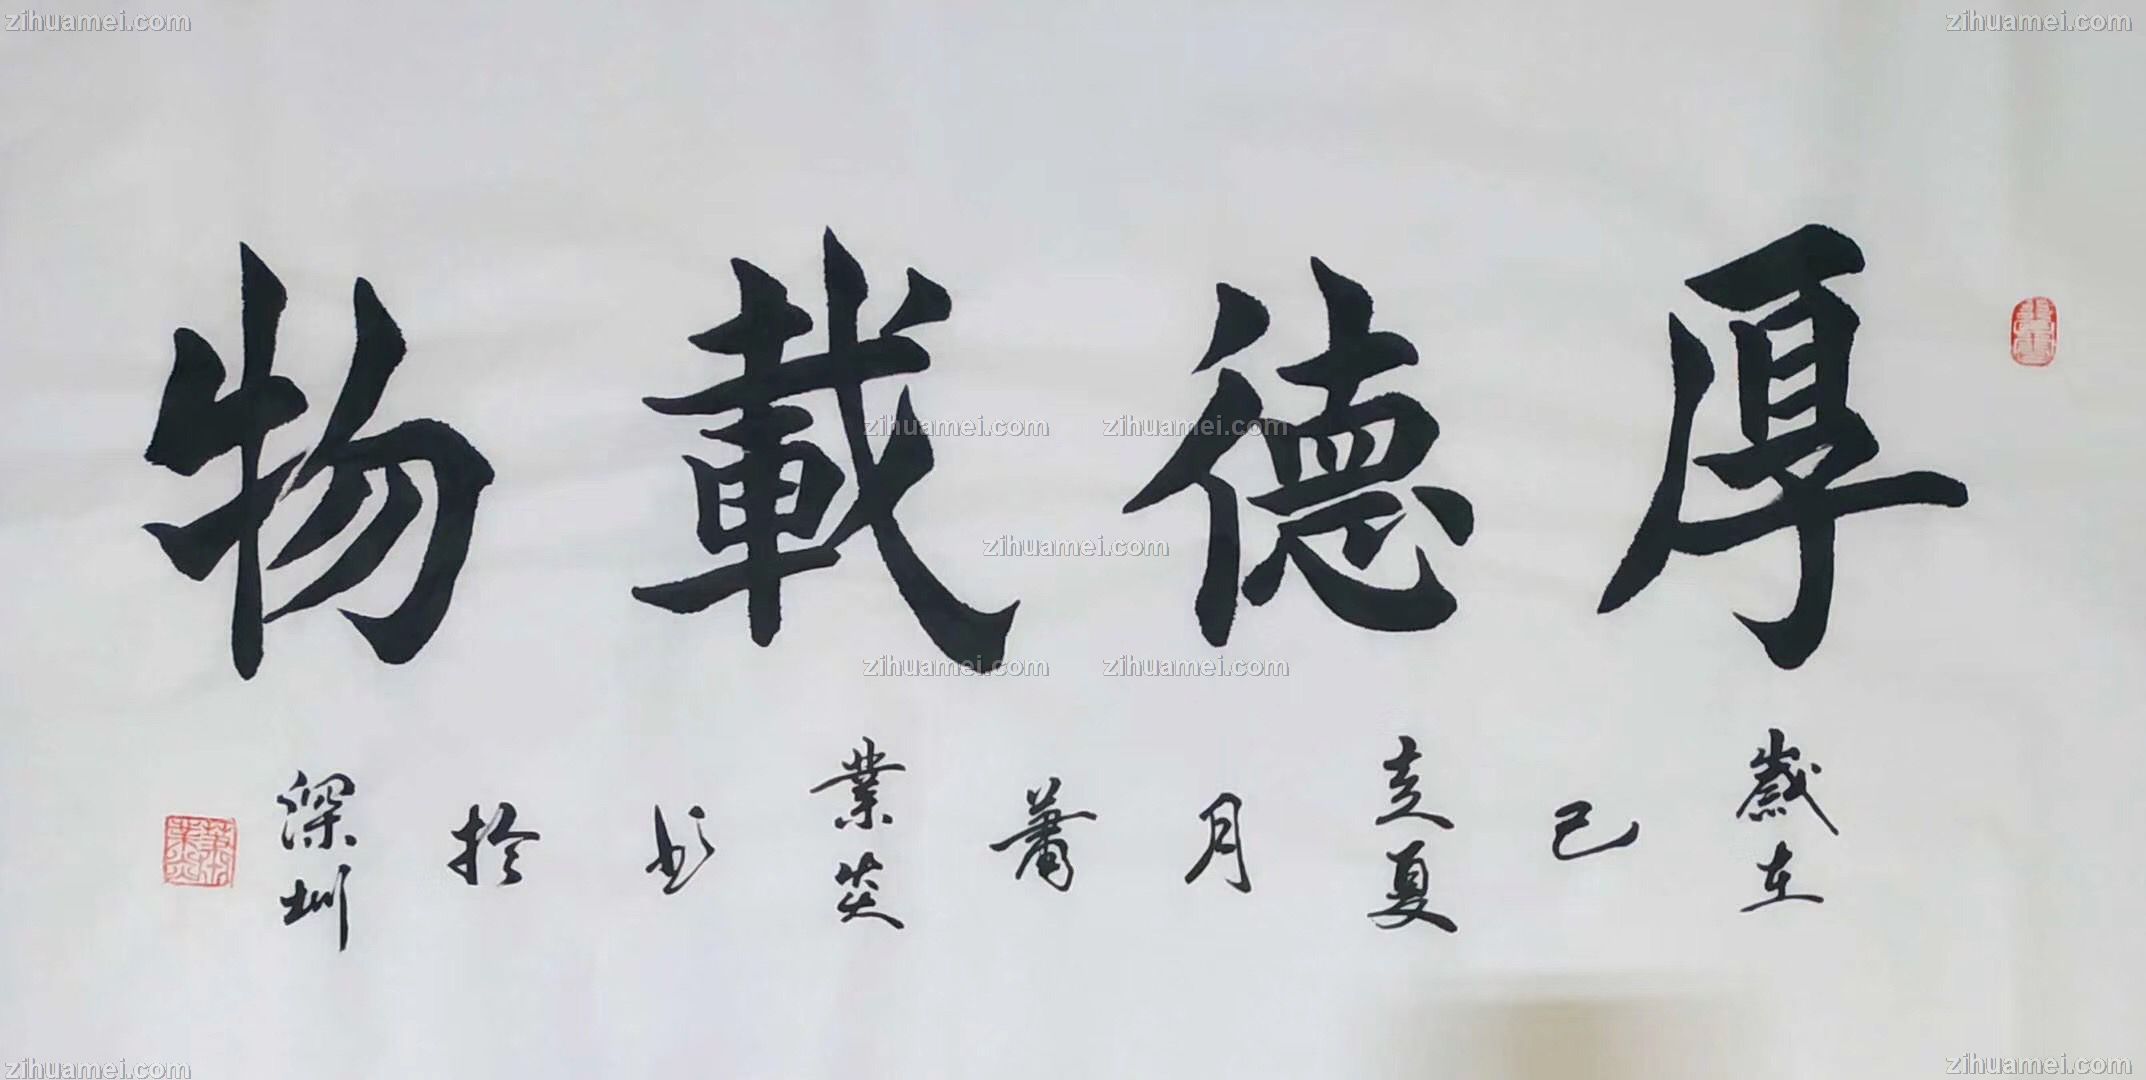 zihuamei.com
zihuamei.com
厚德載物
zihuamei.com
zihuamei.com
zihuamei.com
zihuamei.com
zihuamei.com
歲在己亥夏月蕭業炎書於深圳
zihuamei.com
zihuamei.com